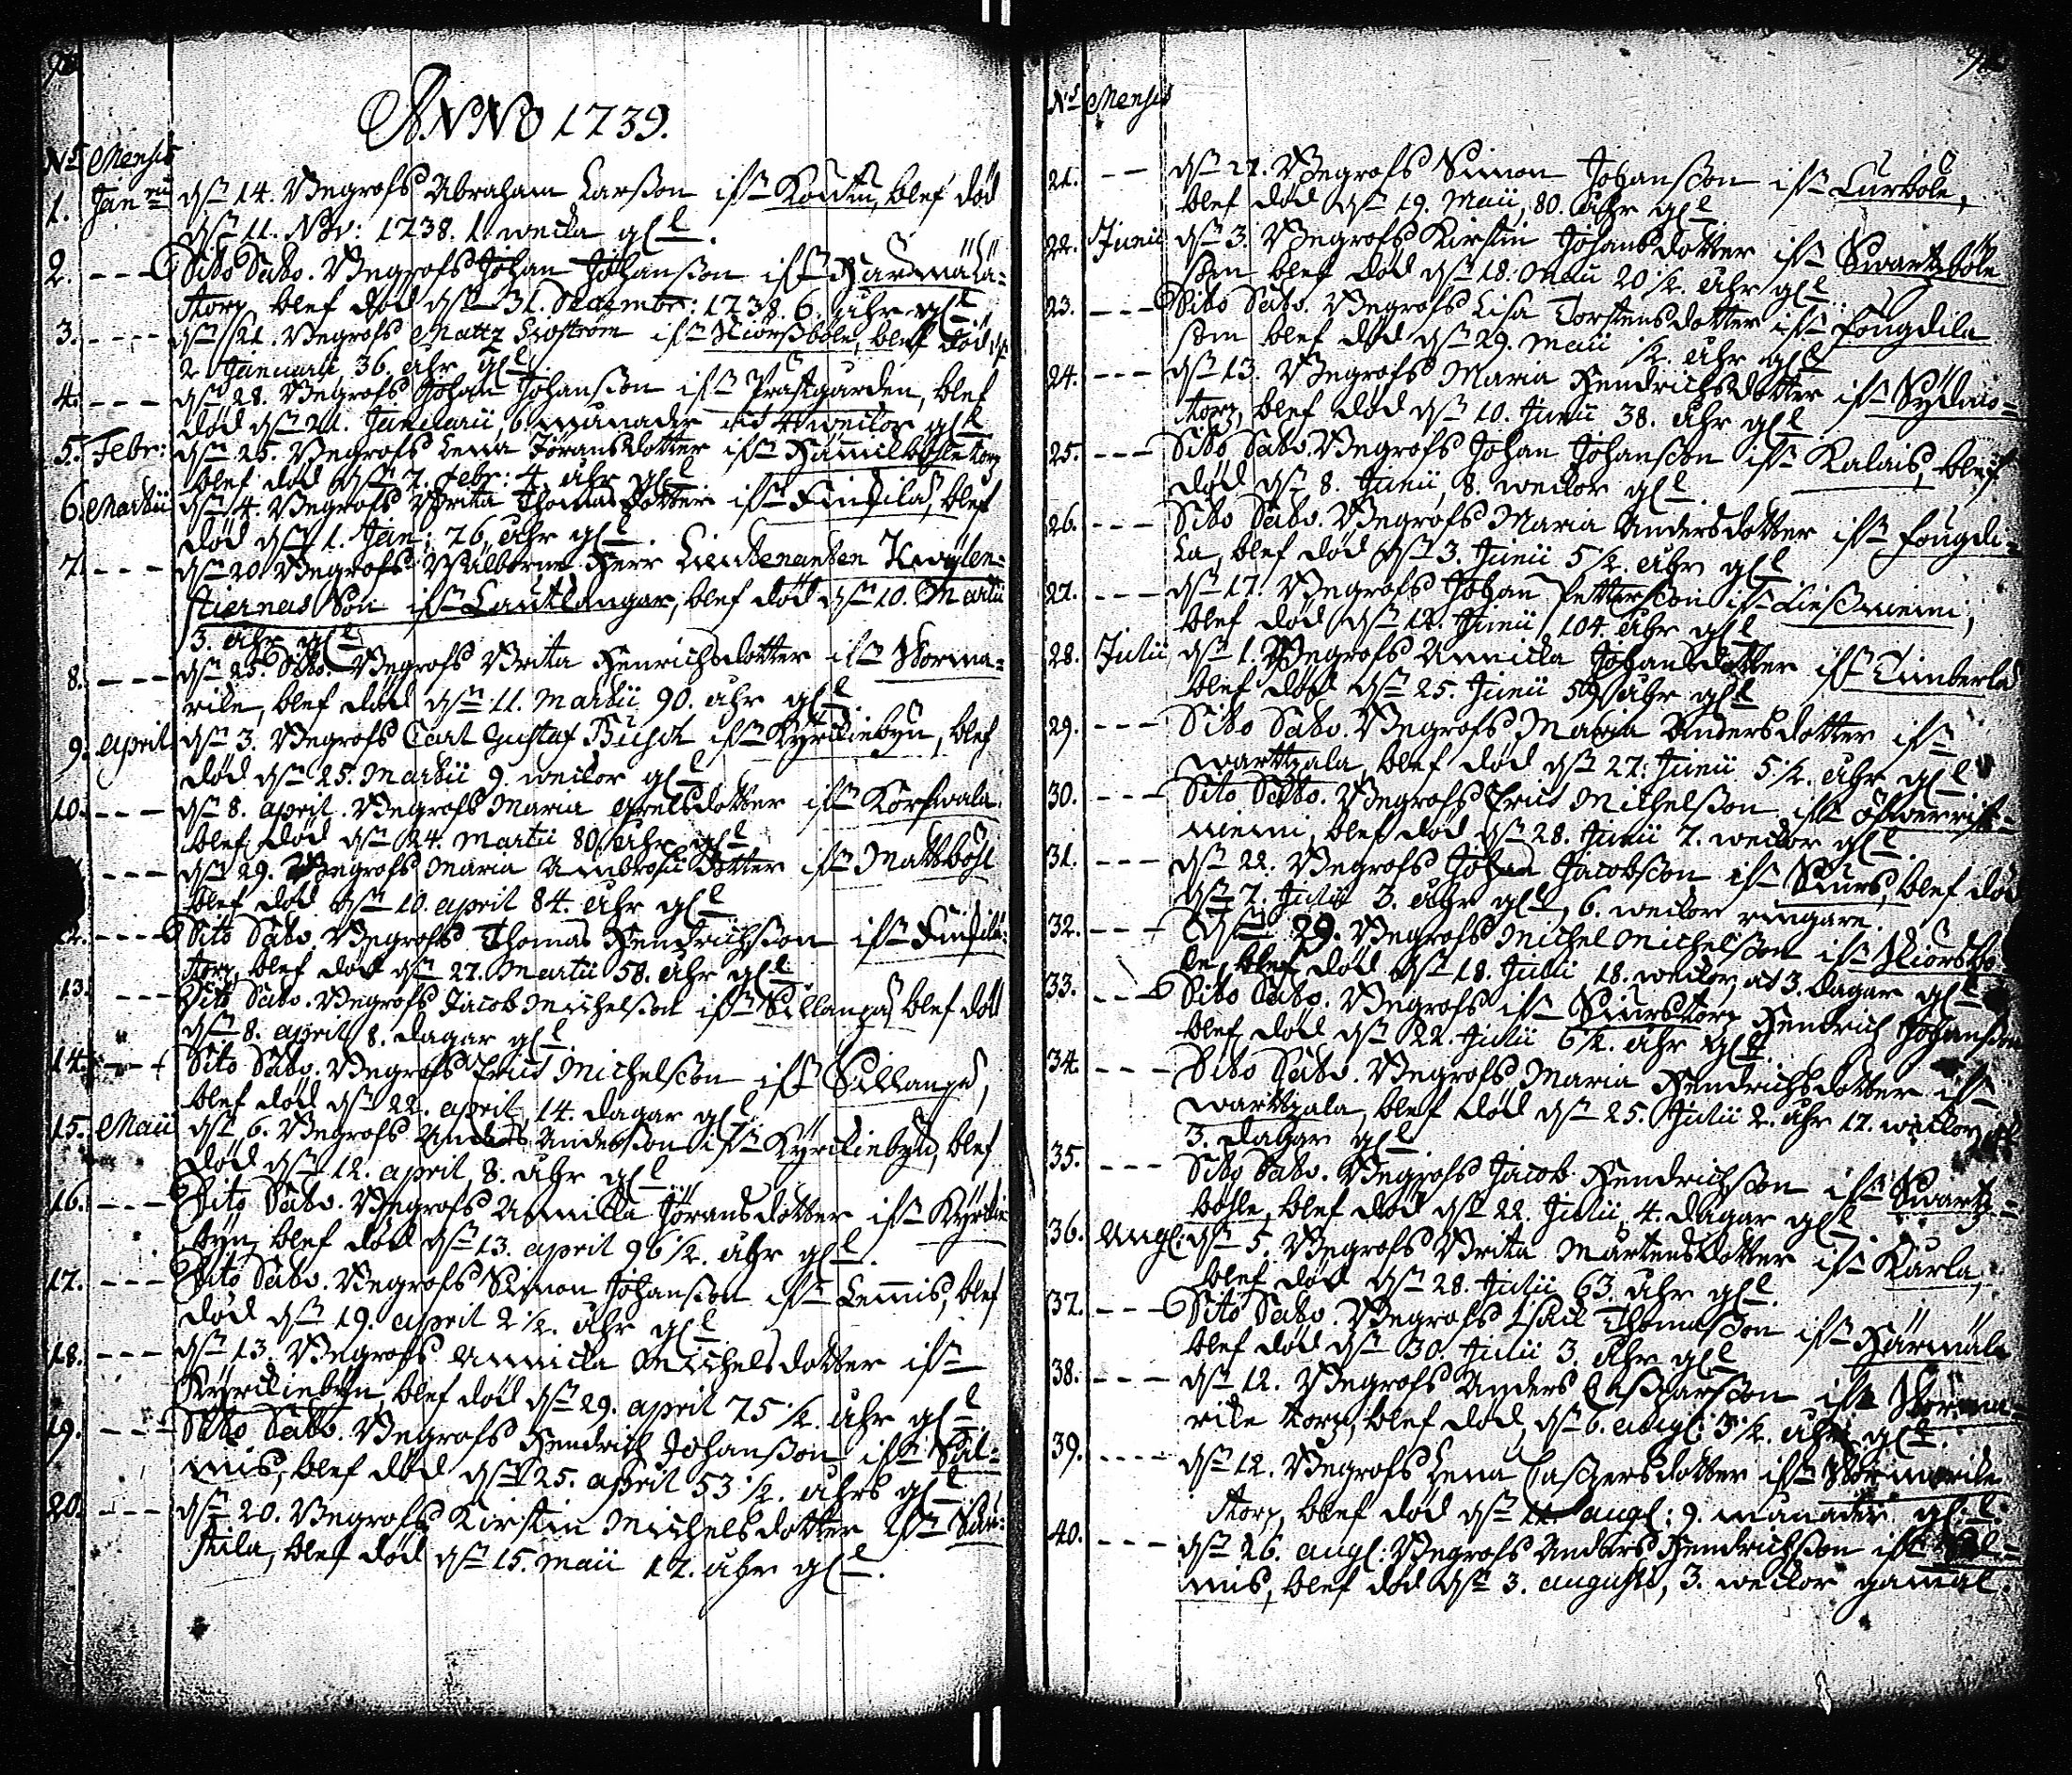 ANNO 1739.
No Mensis
1. Januarii dn 14. Begrofs Abraham Larsson ifrån blef död
dn 11. Nov: 1738. 1. wecka gl
2. - - - Dito Dato. Begrofs Johan Johansson ifrån Harmala=
torp blef död dn 31. Decembr: 1738. 6. ahr gl
3. - - - dn 21. Begrofs Mattz ifrån blef död dn
2 Januarii 36. ahr gl
4. - - - dn 28. Begrofs Johan Johansson ifrån Prästgården, blef
död dn 21. Januarii, 6 månader 4 weckor gl
5. Febr: dn 25. Begrofs Lena Jöransdotter ifrån torp
blef död dn 7. Febr: 4. ahr gl
6. Martii dn 4. Begrofs Brita Thomasdotter ifrån blef
död dn 1. Jan: 76. ahr gl
7. - - - dn 20 Begrofs Wälborne Herr Lieutenanten
stiernas Son ifrån Lautlangar, blef död dn 10. Martii
3. ahr gl
8. - - - dn 25. Dito. Begrofs Brita Henrichsdotter ifrån Norma=
rike, blef död dn 11. Martii 90. ahr gl
9. April dn 3. Begrofs Carl Gustaf Busch ifrån Kyrckiebyn, blef
död dn 25. Martii 9. weckor gl
10. - - - dn 8. april. Begrofs Maria ifrån
blef död dn 24. Martii 80. ahr gl
- - - dn 29. Begrofs Maria Ambrosii dotter ifrån Mattböhl
blef död dn 10. april 84. ahr gl
2. - - - Dito Dato. Begrofs Thomas Hendrichsson ifrån
torp, blef död dn 27. Martii 58. ahr gl
13. - - - Dito Dato. Begrofs Jacob Michelsson ifrån Sillanpä blef död
dn 8. april 8. dagar gl
14. - - - Dito Dato. Begrofs Erich Michelsson ifrån Sillanpä,
blef död dn 22. april, 14. dagar gl
15. Maii dn 6. Begrofs Anders Andersson ifrån Kyrckiebyn, blef
död dn 12. april, 8. ahr gl
16. - - - Dito Dato. Begrofs Annicka Jöransdotter ifrån Kyrckie
byn, blef död dn 13. april 96 1/2. ahr gl
17. - - - Dito Dato. Begrofs Simon Johansson ifrån Lemnis, blef
död dn 19. april 2 1/2. ahr gl
18. - - - dn 13. Begrofs Annicka Michelsdotter ifrån
Kyrckiebyn, blef död dn 29. april 75 1/2. ahr gl
19. - - - Dito Dato. Begrofs Hendrich Johansson ifrån Sal=
mis, blef död dn 25. april 53 1/2. ahrs gl
20. - - - dn 20. Begrofs Kirstin Michelsdotter ifrån
kila, blef död dn 15. Maii 17. ahr gl
No Mensis
21. - - dn 27. Begrofs Simon Johansson ifrån Lurbole,
blef död dn 19. Maii, 80. ahr gl
22. Junii dn 3. Begrofs Kirstin Johansdotter ifrån Swartzböle
som blef död dn 18. Maii 20 1/2. ahr gl
23. - - - Dito Dato. Begrofs Lisa Torstensdotter ifrån Fougdila
som blef död dn 29. Maii 1/2. ahr gl
24. - - - dn 13. Begrofs Maria Hendrichsdotter ifrån
torp, blef död dn 10. Junii 38. ahr gl
25. - - - Dito Dato. Begrofs Johan Johansson ifrån Kalais, blef
död dn 8. Junii, 8. weckor gl
26. - - - Dito Dato. Begrofs Maria Andersdotter ifrån Fougdi=
la, blef död dn 3. Junii 5 1/2. ahr gl
27. - - - dn 17. Begrofs Johan Pettersson ifrån
blef död dn 12. Junii 104. ahr gl
28. Julii dn 1. Begrofs Annicka Johansdotter ifrån Timberla
blef död dn 25. Junii 59 ahr gl
29. - - - Dito Dato. Begrofs Maria Andersdotter ifrån
warttzala, blef död dn 27. Junii 5 1/2. ahr gl
30. - - - Dito Dato. Begrofs Erich Michelsson ifrån
niemi, blef död dn 28. Junii 7. weckor gl
31. - - - dn 22. Begrofs Johan Jacobsson ifrån Siurs, blef död
dn 7. Julii 3. ahr gl, 6. weckor ringare.
32. - - - dn 29. Begrofs Michel Michelsson ifrån
le, blef död dn 18. Julii 18. weckor, at 3. dagar gl
33. - - - Dito Dato. Begrofs ifrån Siurstorp Hendrich Johansson
blef död dn 22. Julii 6 1/2. ahr gl
34. - - - Dito Dato. Begrofs Maria Hendrichsdotter ifrån
warttzala, blef död dn 25. Julii 2. ahr 17. weckor
3. dagar gl
35. - - - Dito Dato. Begrofs Jacob Hendrichsson ifrån Swartz=
böhle, blef död dn 22. Julii, 4. dagar gl
36. Augl: dn 5. Begrofs Brita Mårtensdotter ifrån Karla,
blef död dn 28. Julii 63. ahr gl
37. - - - Dito Dato. Begrofs Isack Thomasson ifrån Härmäla
blef död dn 30. Julii 3. ahr gl
38. - - - dn 12. Begrofs Anders Casparsson ifrån Norma=
rike torp, blef död dn 6. augl: 3 1/2. ahr gl
39. - - - dn 12. Begrofs Lena Caspersdotter ifrån Normarike
torp, blef död dn 11 augl: 9. månader gl
40. - - - dn 26. augl: Begrofs Anders Hendrichsson ifrån
mis, blef död dn 3. augusti, 3. weckor gamal.